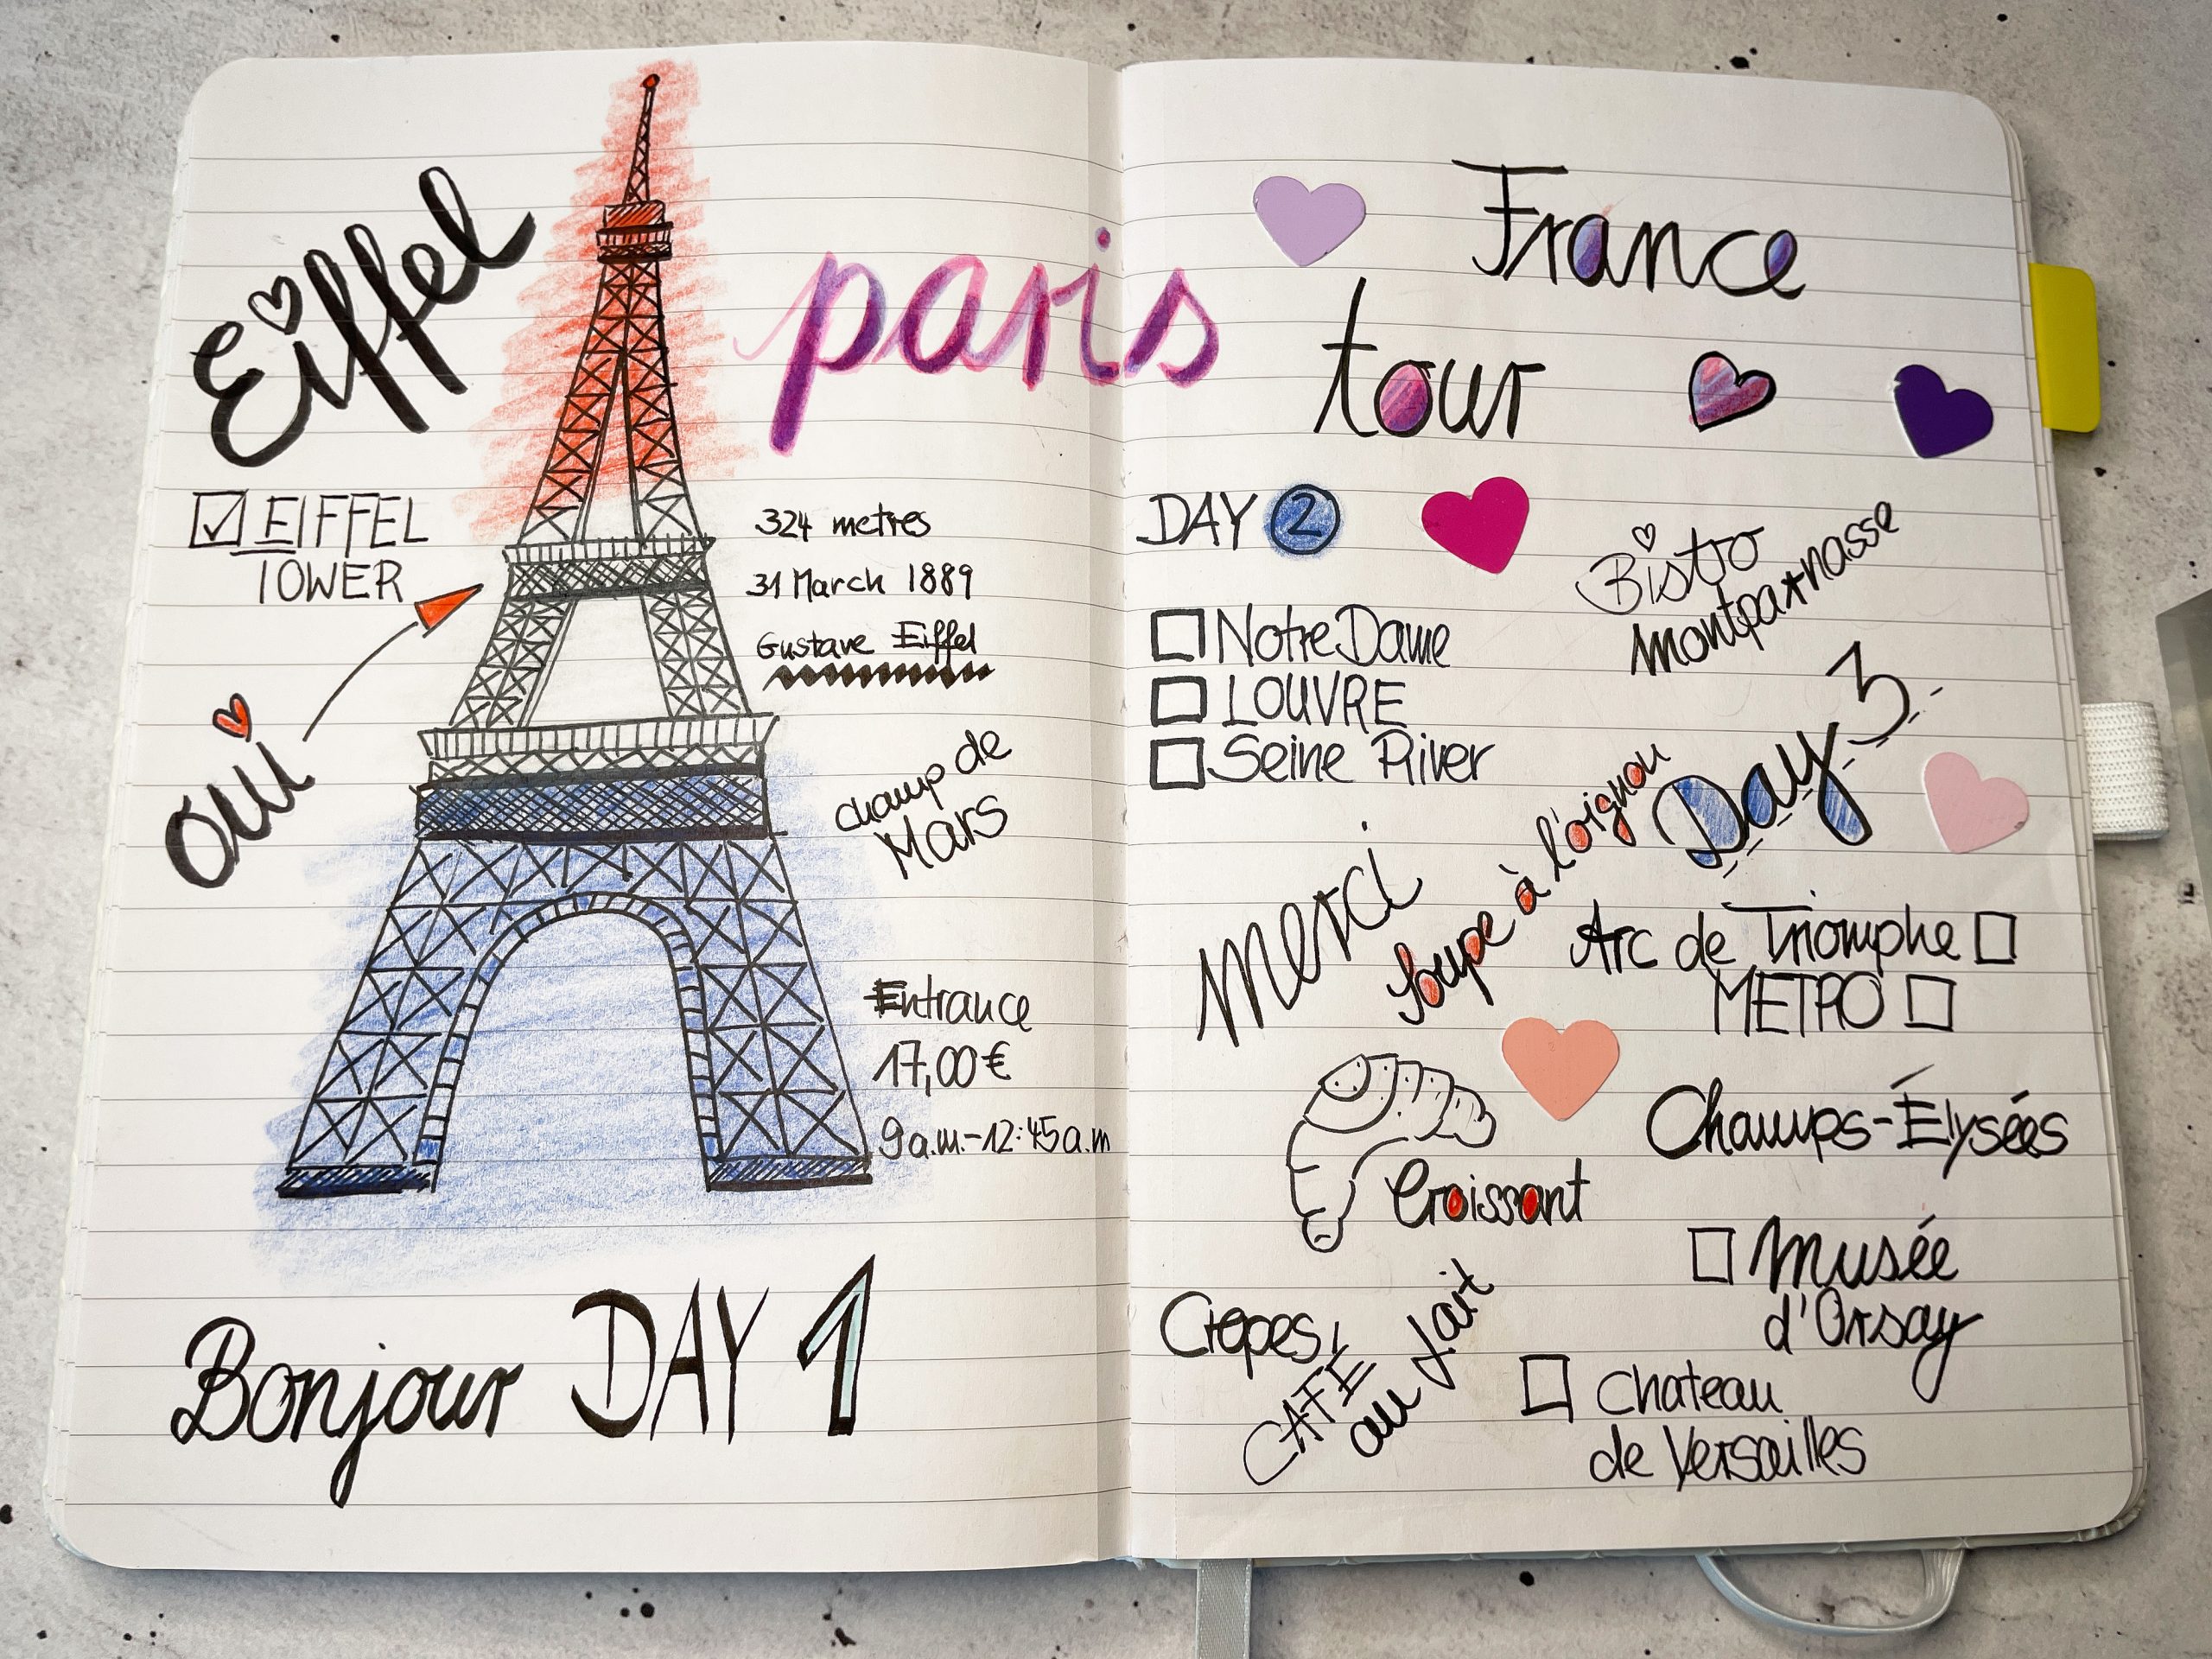 Eiffel
paris
☑ EIFFEL
TOWER
324 metres
31 March 1889
Gustave Eiffel
oui
champ de
Mars
Entrance
17,00 €
9 a.m.-12:45 a.m
Bonjour DAY 1
France
tour
DAY 2
Bistro
Montparnasse
☐ Notre Dame
☐ LOUVRE
☐ Seine River
Day 3
Merci
Soupe à l'oignon
Arc de Triomphe ☐
METRO ☐
Champs-Élysées
Croissant
☐ Musée
d'Orsay
Crepes,
CAFE
au lait
☐ Chateau
de Versailles